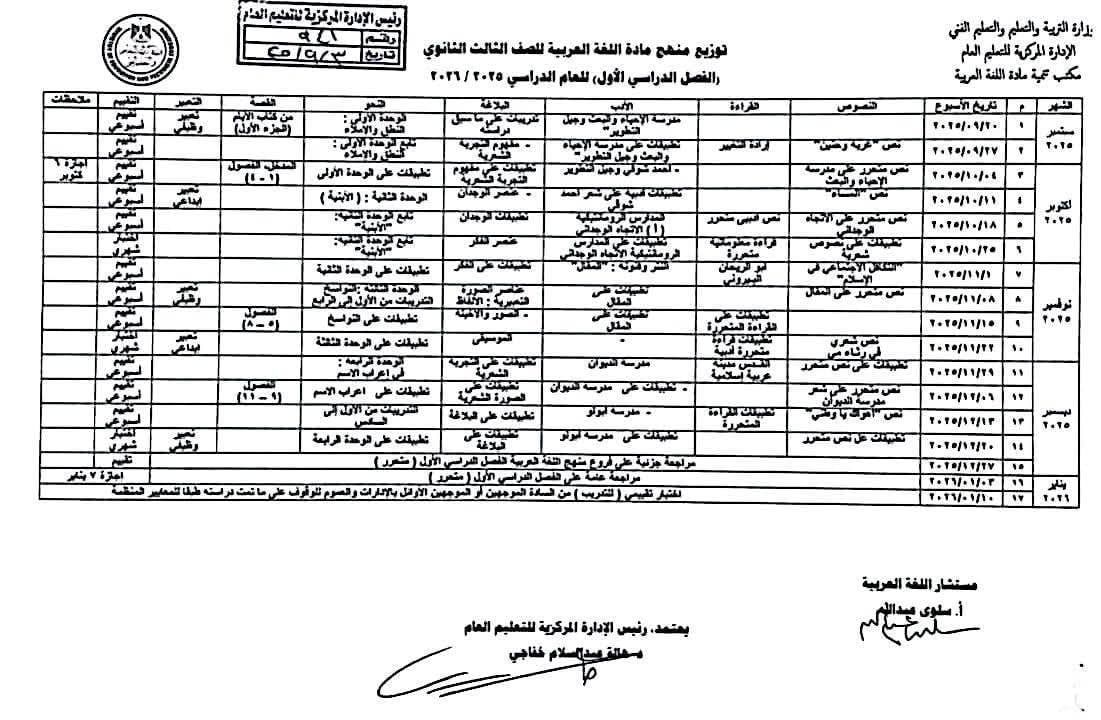 وزارة التربية والتعليم والتعليم الفني
الإدارة المركزية للتعليم العام
مكتب تنمية مادة اللغة العربية
رئيس الإدارة المركزية للتعليم العام
رقم ٩٤١
تاريخ
توزيع منهج مادة اللغة العربية للصف الثالث الثانوي
(الفصل الدراسي الأول) للعام الدراسي ٢٠٢٥ / ٢٠٢٦
الشهر م تاريخ الأسبوع النصوص القراءة الأدب البلاغة النحو القصة التعبير التقييم ملاحظات
سبتمبر ٢٠٢٥
١ ٢٠٢٥/٠٩/٢٠ مدرسة الإحياء والبعث وجيل التطوير" تدريبات على ما سبق دراسته الوحدة الأولى : النطق والإملاء من كتاب الأيام (الجزء الأول) تعبير وظيفي تقييم أسبوعي
٢ ٢٠٢٥/٠٩/٢٧ نص "غربة وحنين" إرادة التغيير تطبيقات على مدرسة الإحياء والبعث وجيل التطوير" - مفهوم التجربة الشعرية تابع الوحدة الأولى : النطق والاملاء تقييم أسبوعي
أكتوبر ٢٠٢٥
٣ ٢٠٢٥/١٠/٠٤ نص متحرر على مدرسة الإحياء والبعث - أحمد شوقي وجيل التطوير تطبيقات على مفهوم التجربة الشعرية تطبيقات على الوحدة الأولى المدخل، الفصول (١ - ٤) تقييم أسبوعي اجازة ٦ أكتوبر
٤ ٢٠٢٥/١٠/١١ نص "المساء" تطبيقات أدبية على شعر أحمد شوقي - عنصر الوجدان الوحدة الثانية : ( الأبنية ) تعبير ابداعي تقييم أسبوعي
٥ ٢٠٢٥/١٠/١٨ نص متحرر على الاتجاه الوجداني نص أدبي متحرر المدارس الرومانتيكية (أ) الاتجاه الوجداني تطبيقات الوجدان تابع الوحدة الثانية: "الأبنية" تقييم أسبوعي
٦ ٢٠٢٥/١٠/٢٥ تطبيقات على نصوص شعرية قراءة معلوماتية متحررة تطبيقات على المدارس الرومانتيكية الاتجاه الوجداني عنصر الفكر تابع الوحدة الثانية: "الأبنية" اختبار شهري
نوفمبر ٢٠٢٥
٧ ٢٠٢٥/١١/١ "التكافل الاجتماعي في الإسلام" أبو الريحان البيروني النثر وفنونه : "المقال" تطبيقات على الفكر تطبيقات على الوحدة الثانية تقييم أسبوعي
٨ ٢٠٢٥/١١/٠٨ نص متحرر على المقال تطبيقات على المقال عناصر الصورة التعبيرية : الألفاظ الوحدة الثالثة :النواسخ التدريبات من الأول إلى الرابع تعبير وظيفي تقييم أسبوعي
٩ ٢٠٢٥/١١/١٥ تطبيقات على القراءة المتحررة تطبيقات على المقال - الصور والأخيلة تطبيقات على النواسخ الفصول (٥ - ٨) تقييم أسبوعي
١٠ ٢٠٢٥/١١/٢٢ نص شعري في رثاء مي تطبيقات قراءة متحررة أدبية - الموسيقى تطبيقات على الوحدة الثالثة تعبير ابداعي اختبار شهري
١١ ٢٠٢٥/١١/٢٩ تطبيقات على نص متحرر القدس مدينة عربية إسلامية مدرسة الديوان تطبيقات على التجربة الشعرية الوحدة الرابعة: في إعراب الاسم تقييم أسبوعي
ديسمبر ٢٠٢٥
١٢ ٢٠٢٥/١٢/٠٦ نص متحرر على شعر مدرسة الديوان - تطبيقات على مدرسة الديوان تطبيقات على الصورة الشعرية تطبيقات على اعراب الاسم الفصول (٩ - ١١) تقييم أسبوعي
١٣ ٢٠٢٥/١٢/١٣ نص "أهواك يا وطني" تطبيقات القراءة المتحررة - مدرسة أبولو تطبيقات على البلاغة التدريبات من الأول إلى السادس تقييم أسبوعي
١٤ ٢٠٢٥/١٢/٢٠ تطبيقات عل نص متحرر تطبيقات على مدرسة أبولو تطبيقات على البلاغة تطبيقات على الوحدة الرابعة تعبير وظيفي اختبار شهري
١٥ ٢٠٢٥/١٢/٢٧ مراجعة جزئية على فروع منهج اللغة العربية الفصل الدراسي الأول ( متحرر ) تقييم
يناير ٢٠٢٦
١٦ ٢٠٢٦/٠١/٠٣ مراجعة عامة على الفصل الدراسي الأول ( متحرر ) اجازة ٧ يناير
١٧ ٢٠٢٦/٠١/١٠ اختبار تقييمي ( للتدريب ) من السادة الموجهين أو الموجهين الأوائل بالادارات والعموم للوقوف على ما تمت دراسته طبقا للمعايير المنظمة
مستشار اللغة العربية
أ. سلوى عبدالله
يعتمد، رئيس الإدارة المركزية للتعليم العام
د. هالة عبدالسلام خفاجي